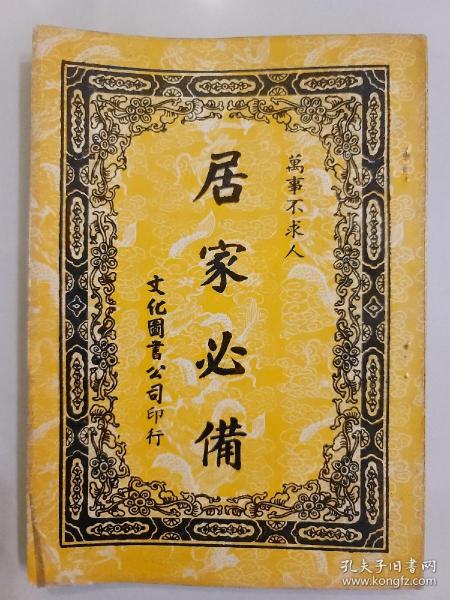 萬事不求人
居家必備
文化圖書公司印行
孔夫子旧书网
www.kongfz.com